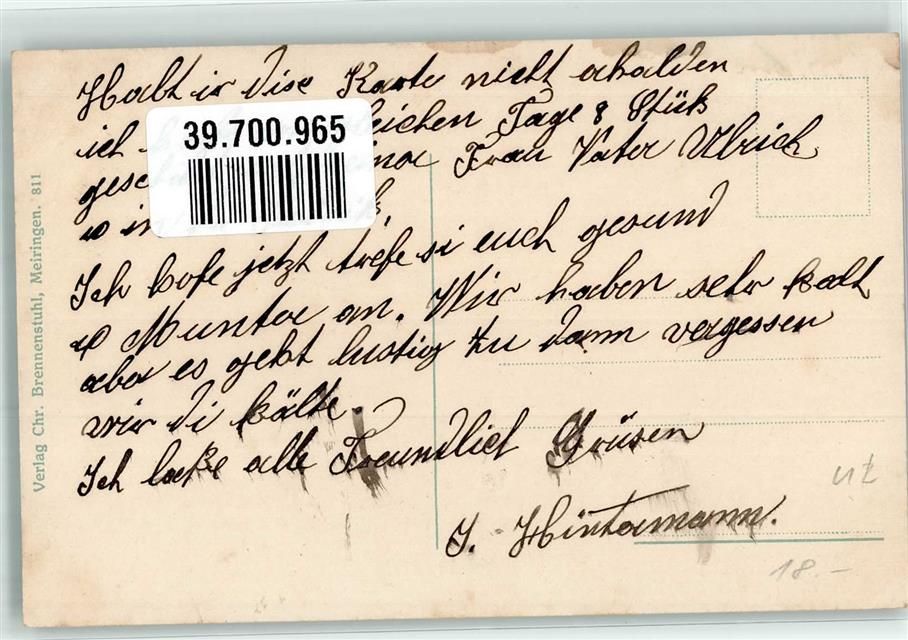 Habt ir dise Karte nicht ahalden
ich leichen Tage 8 Stük
gesc Frau Vater Ulrich
u in
Ich hofe jetzt trefe si euch gesund
u Munter an. Wir haben sehr kalt
aber es geht lustig zu dann vergessen
wir di kälte.
Ich lasse alle Freundlich Grüsen
J. Hintermann.
39.700.965
Verlag Chr. Brennenstuhl, Meiringen. 811
18.-